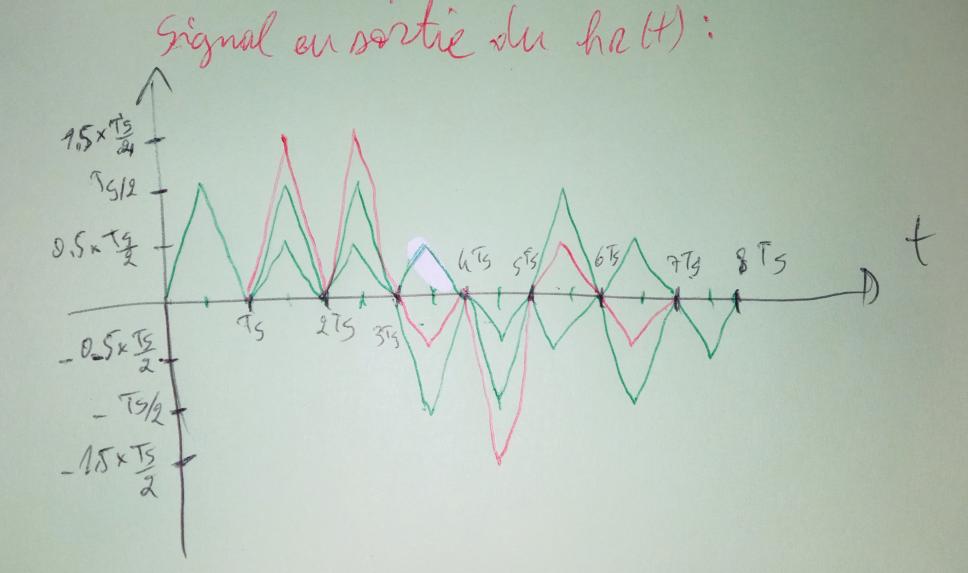 Signal en sortie du hr(t) :
1,5 × Ts/2
Ts/2
0.5 × Ts/2
- 0.5 × Ts/2
- Ts/2
- 1.5 × Ts/2
Ts
2Ts
3Ts
4Ts
5Ts
6Ts
7Ts
8Ts
t